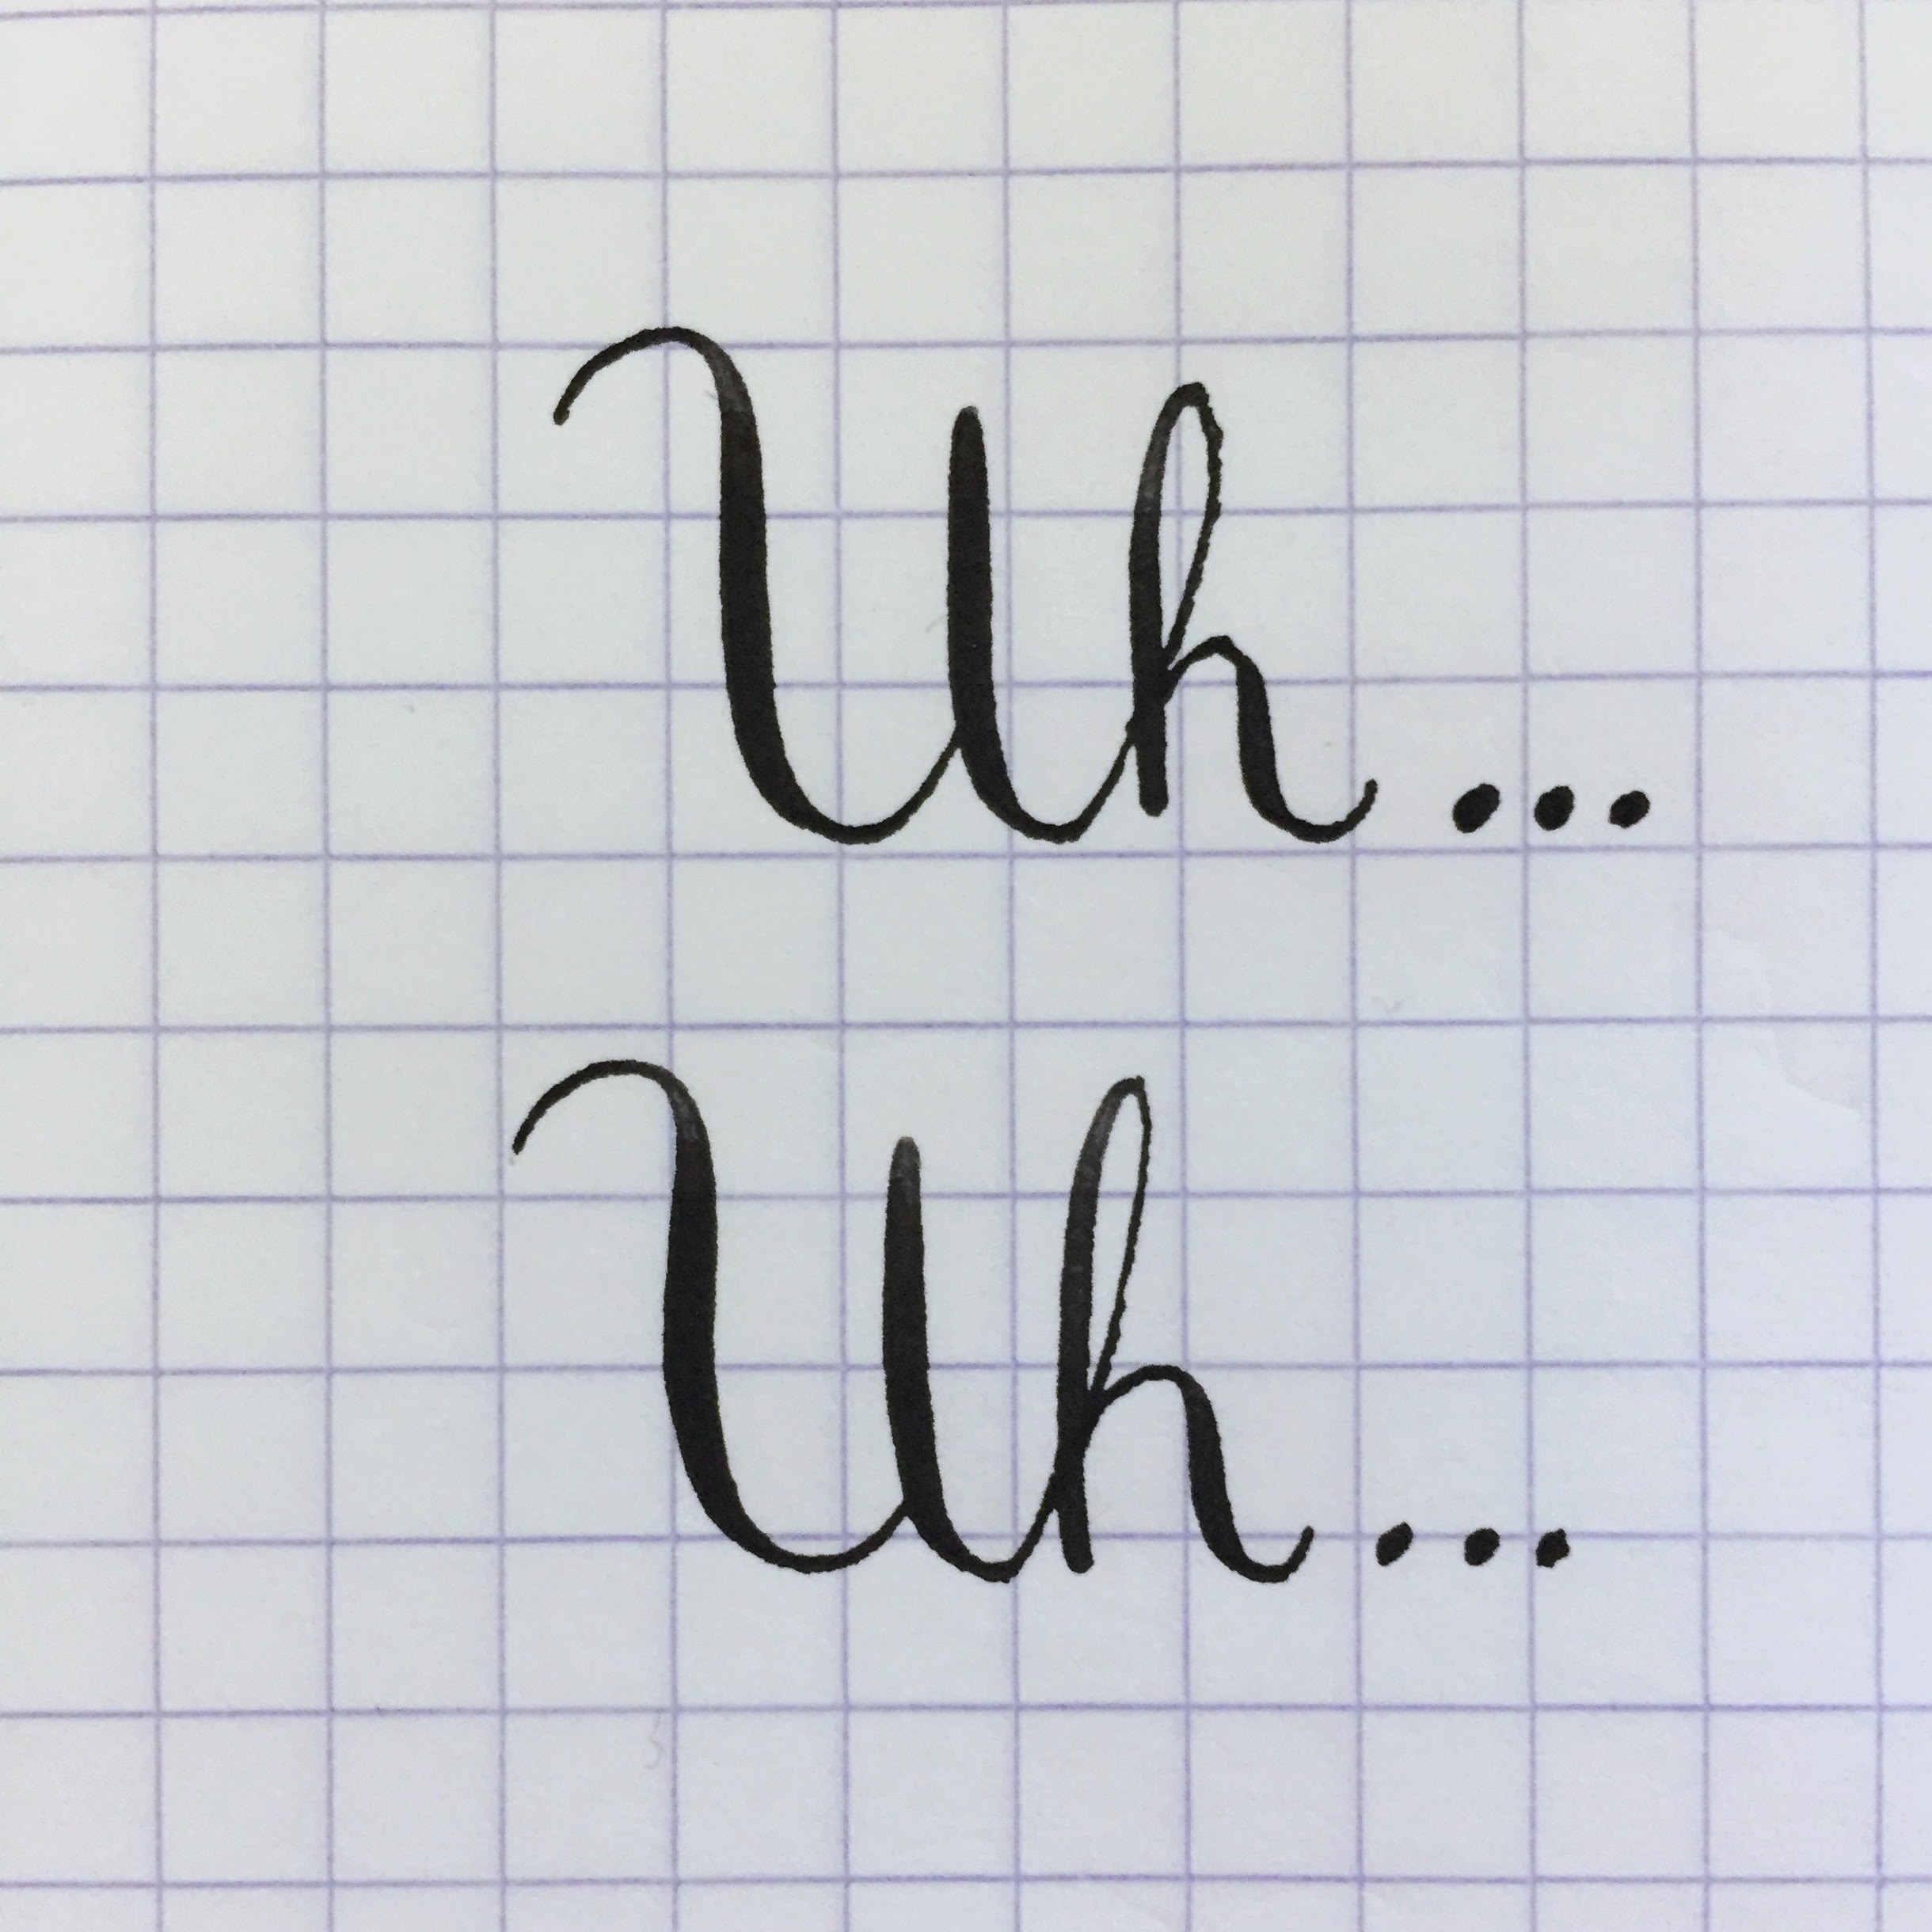 Uh...
Uh...